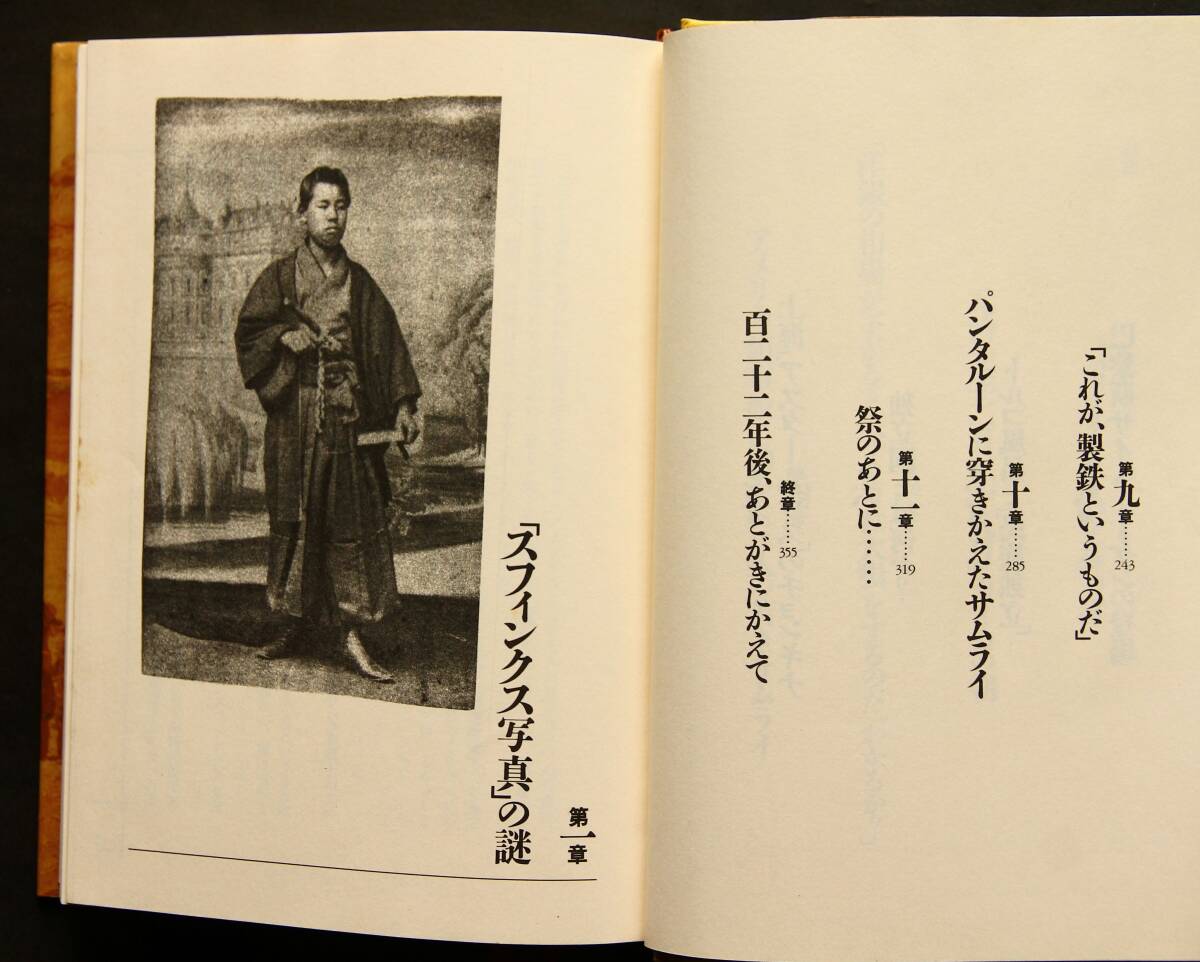 第九章……243
「これが、製鉄というものだ」
第十章……285
パンタルーンに穿きかえたサムライ
第十一章……319
祭のあとに……
終章……355
百二十二年後、あとがきにかえて
第一章
「スフィンクス写真」の謎